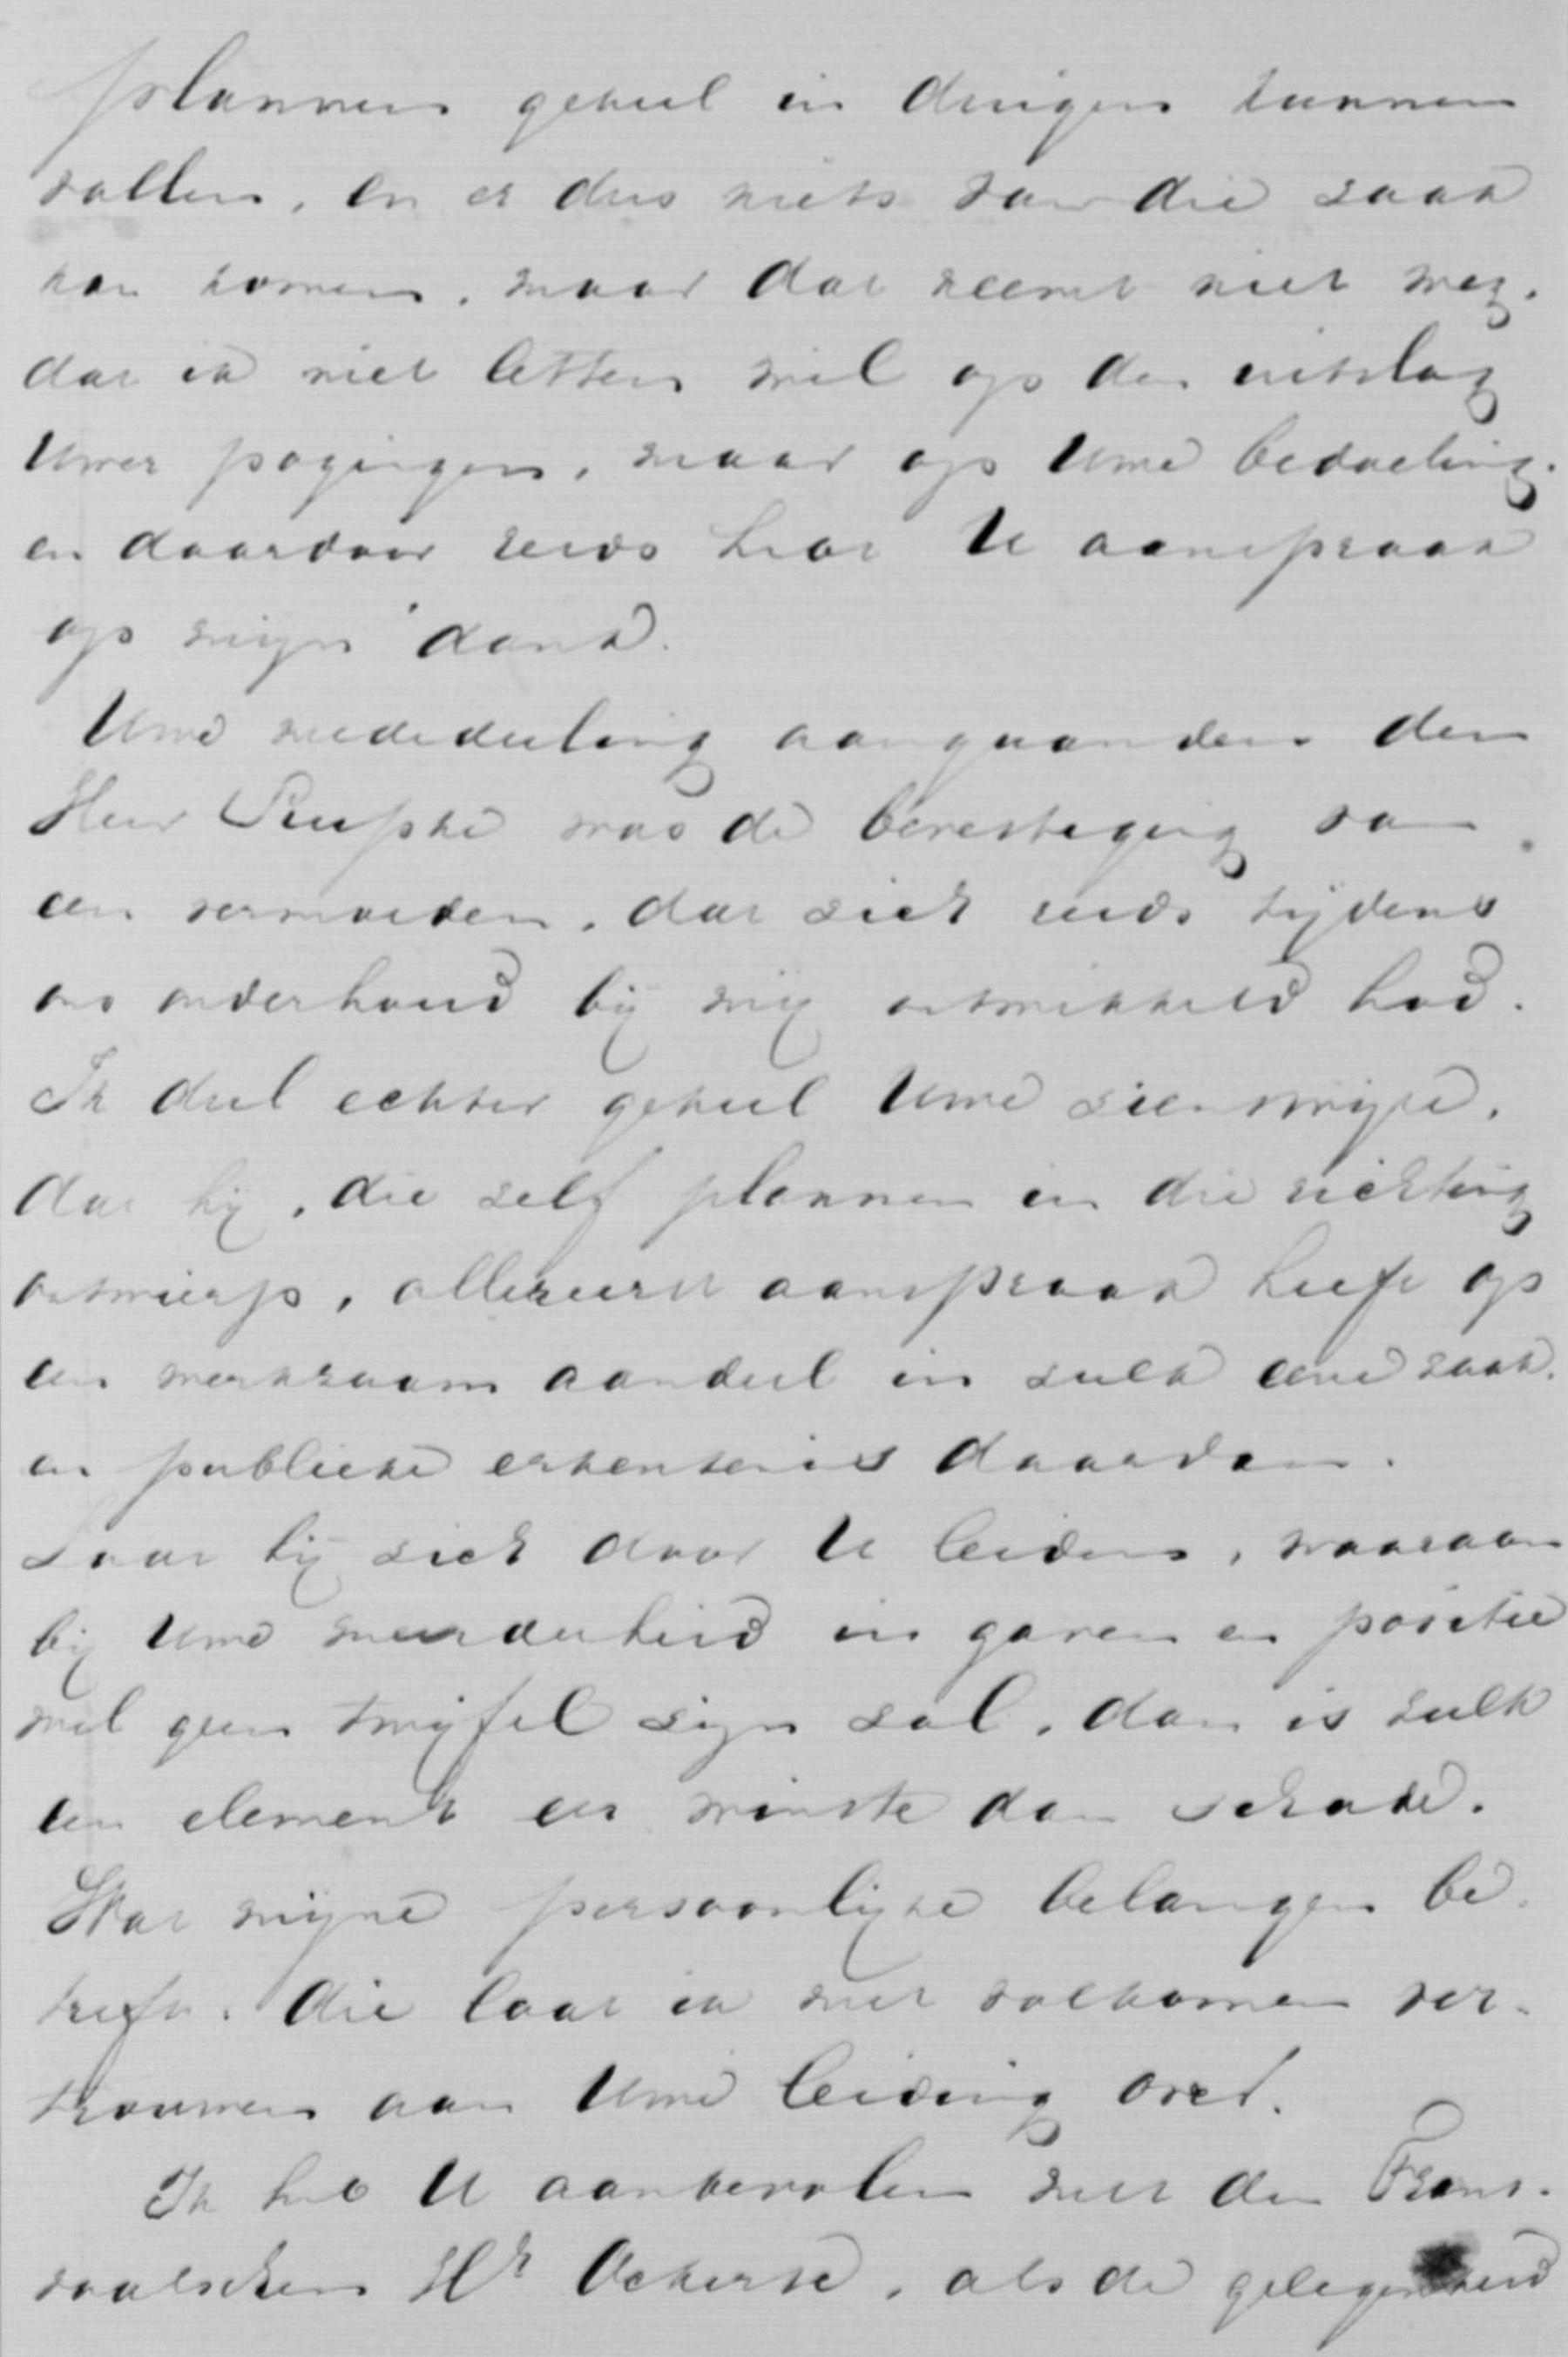 plannen geheel in duigen kunnen
vallen, en er dus niets van die zaak
kan komen, maar dat neemt niet weg,
dat ik niet letten wil op den uitslag
Uwer pogingen, maar op Uwe bedoeling,
en daardoor reeds hebt U aanspraak
op mijn dank.
Uwe mededeeling aangaanden den
Heer was de bevestiging van
een vermoeden, dat zich reeds tijdens
ons onderhoud bij mij ontwikkeld had.
Ik deel echter geheel Uwe zienswijze,
dat hij, die zelf plannen in die richting
ontwierp, allereerst aanspraak heeft op
een werkzaam aandeel in zulk eene zaak,
en publieke erkentenis daarvan.
Laat hij zich door U leiden, waaraan
bij Uwe meerderheid in gaven en positie
wel geen twijfel zijn zal, dan is zulk
een element er winste dan schade.
Wat mijne persoonlijke belangen be-
treft, die laat ik met volkomen ver-
trouwen aan Uwe leiding over.
Ik heb U aanbevolen met den Trans-
vaalschen Hr Ockerse, als de gelegenheid